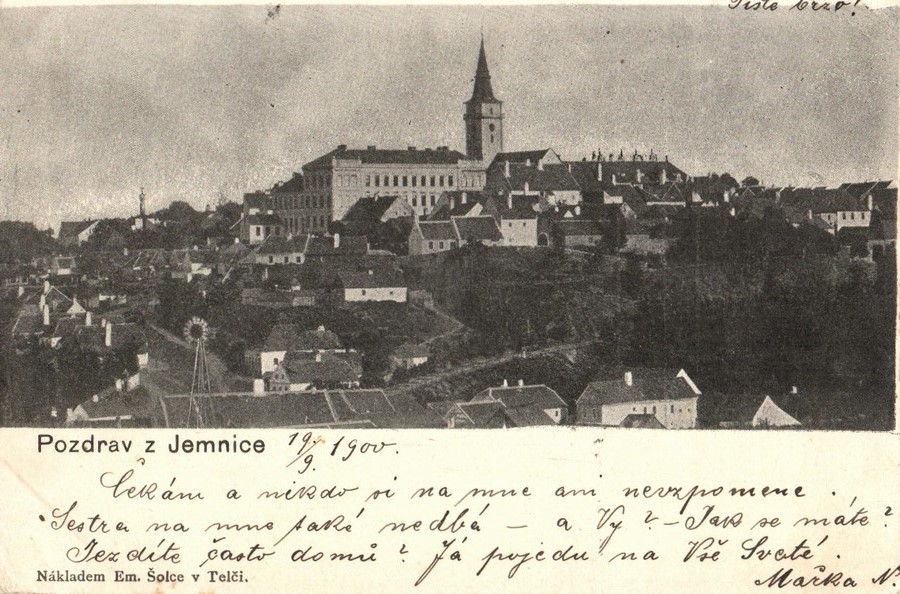 Pište brzo!
Pozdrav z Jemnice 19/9. 1900.
Čekám a nikdo si na mne ani nevzpomene.
Sestra na mne také nedbá – a Vy? – Jak se máte?
Jezdíte často domů? Já pojedu na Vše Svaté.
Nákladem Em. Šolce v Telči.
Mařka N.